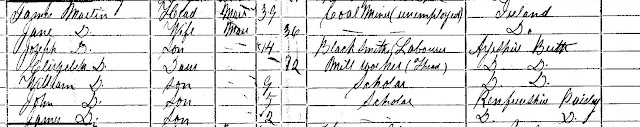 James Martin Head Mar 39 Coal Miner (unemployed) Ireland
Jane D. Wife Mar 36 Do.
Joseph D. Son 14 Black Smith (Labourer Ayrshire Beith
D. Daur 12 Mill Worker (Thread) D. D.
William D. Son 9 Scholar D. D.
John D. Son 5 Scholar Renfrewshire Paisley
James D. Son 2 D. D.